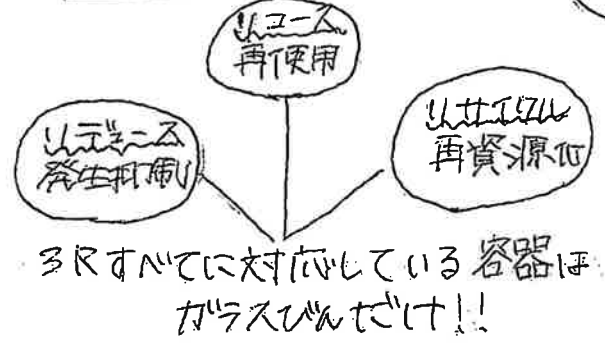 リユース
再使用
リデュース
発生抑制
リサイクル
再資源化
3Rすべてに対応している容器は
ガラスびんだけ!!